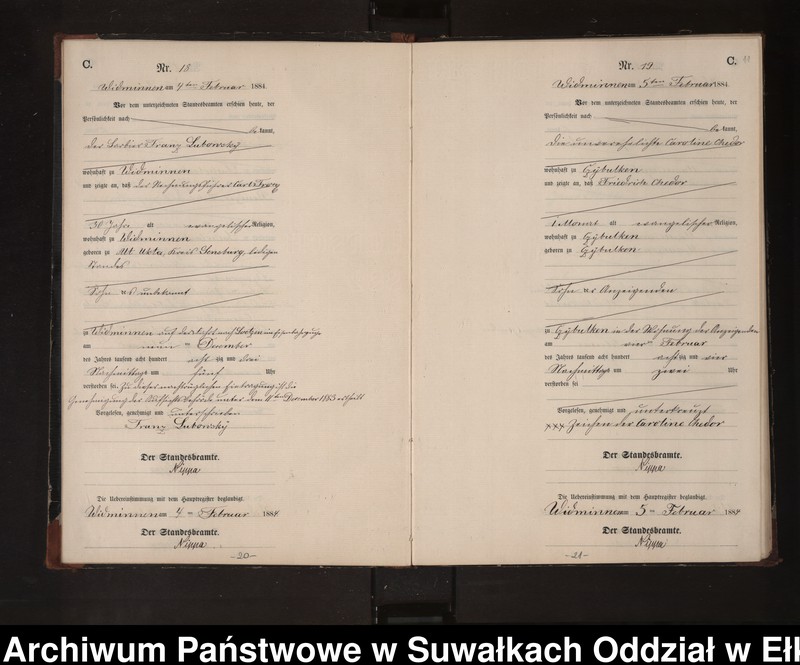 C.
Nr. 18
Widminnen am 4ten Februar 1884
Vor dem unterzeichneten Standesbeamten erschien heute, der
Persönlichkeit nach
be kannt,
der Barbier Franz Lubowsky
wohnhaft zu Widminnen
und zeigte an, daß der Rechnungsführer Carl Franz
30 Jahre alt evangelischer Religion,
wohnhaft zu Widminnen
geboren zu Alt Ukta, Kreis Sensburg, ledigen
Standes
Sohn unbekannt
zu Widminnen auf der nach Loetzen
am neun ten December
des Jahres tausend acht hundert acht zig und drei
Nachmittags um fünf Uhr
verstorben sei. Zu dieser nachträglichen Eintragung ist die
Genehmigung der Aufsichtsbehörde unter dem December 1883 ertheilt
Vorgelesen, genehmigt und unterschrieben
Franz Lubowsky
Der Standesbeamte.
Nippa
Die Uebereinstimmung mit dem Hauptregister beglaubigt.
Widminnen am 4ten Februar 1884
Der Standesbeamte.
Nippa
-20-
C.
Nr. 19
Widminnen am 5ten Februar 1884
Vor dem unterzeichneten Standesbeamten erschien heute, der
Persönlichkeit nach
be kannt,
die unverehelichte Caroline Chedor
wohnhaft zu Gybulken
und zeigte an, daß Friedrich Chedor
1 Monat alt evangelischer Religion,
wohnhaft zu Gybulken
geboren zu Gybulken
Sohn der Anzeigenden
zu Gybulken in der Wohnung der Anzeigenden
am vierten Februar
des Jahres tausend acht hundert acht zig und vier
Nachmittags um zwei Uhr
verstorben sei
Vorgelesen, genehmigt und unterkreuzt
xxx Zeichen der Caroline Chedor
Der Standesbeamte.
Nippa
Die Uebereinstimmung mit dem Hauptregister beglaubigt.
Widminnen am 5ten Februar 1884
Der Standesbeamte.
Nippa
-21-
Archiwum Państwowe w Suwałkach Oddział w Ełk